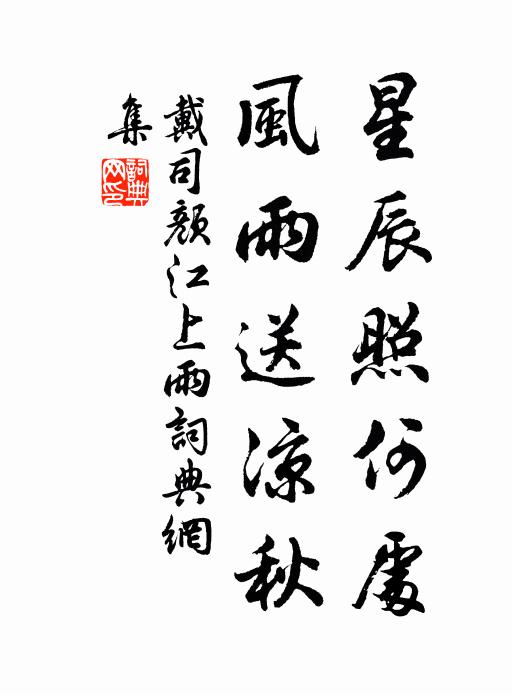 星辰照何處
風雨送涼秋
戴司顏江上雨詞典網
集
詞典
网印